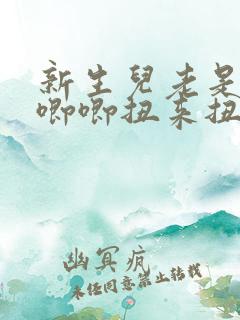 新生兒老是
唧唧扭来扭
幽冥疯
未经同意禁止转载